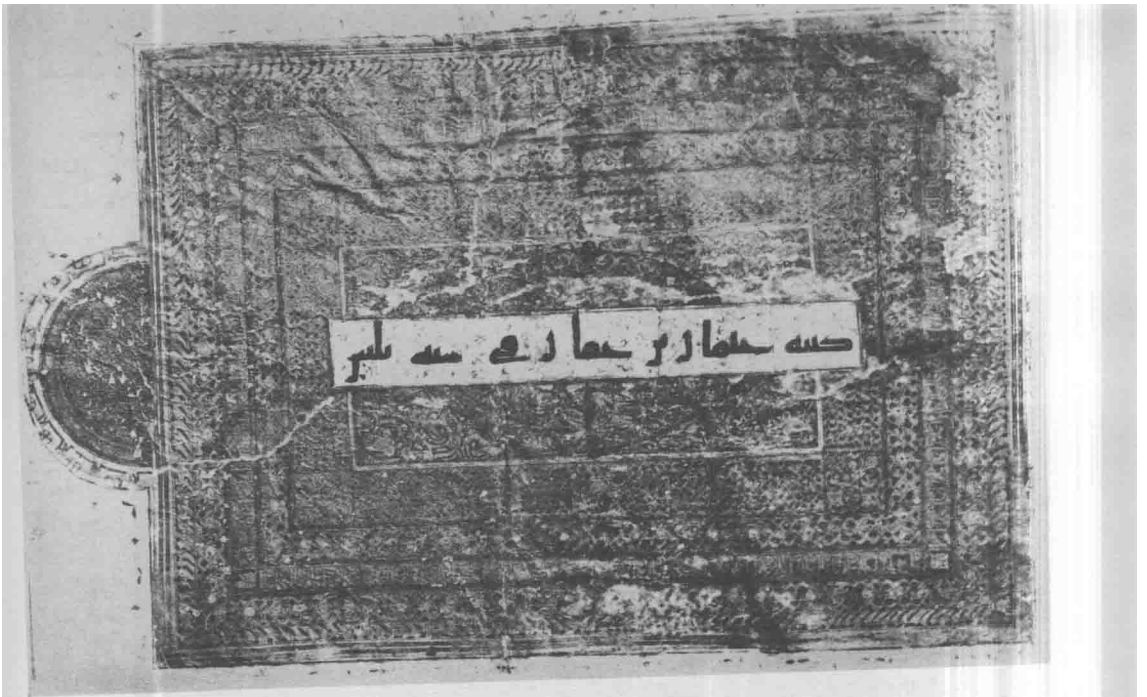 كتبه عثمان بن عفان في سنه ثلثين